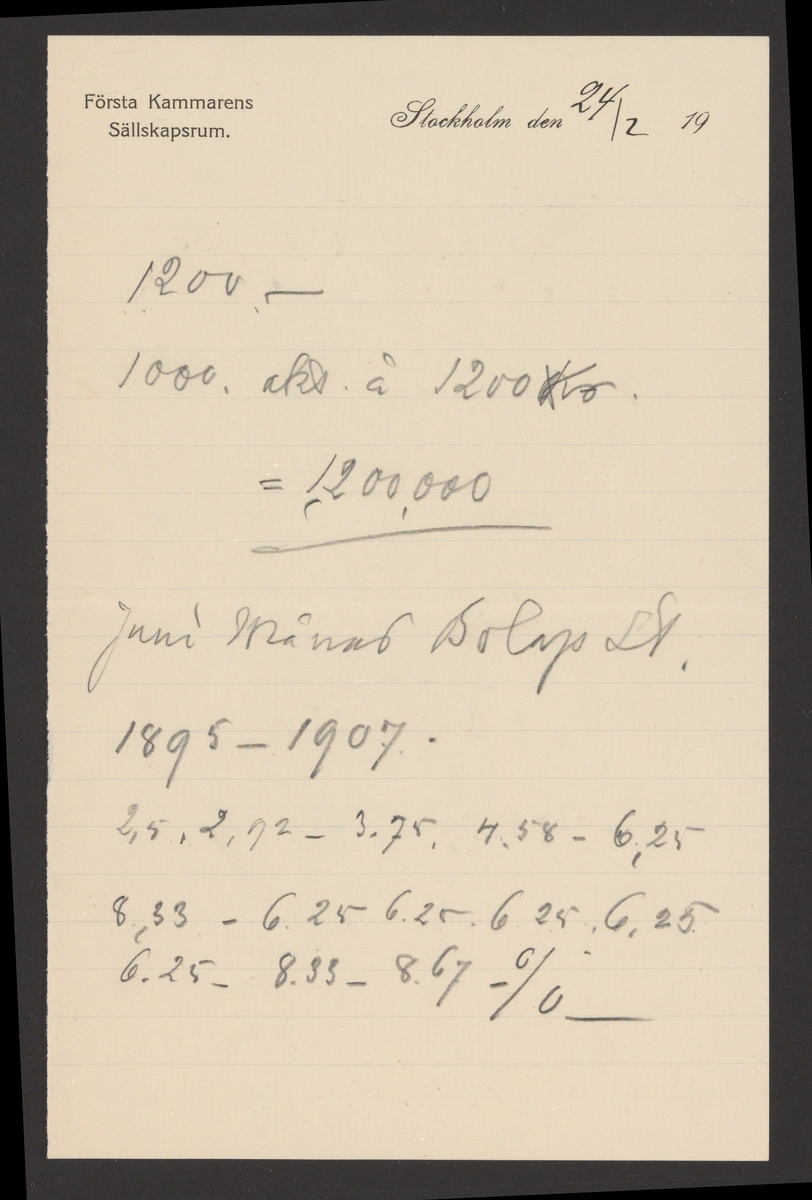 Första Kammarens
Sällskapsrum.
Stockholm den 24/2 19
1200.—
1000. akt. à 1200 Kr.
= 1,200,000
Juni Månad
1895 – 1907.
2,5. 2,92 – 3.75. 4.58 – 6,25
8,33 – 6.25 6.25. 6 25. 6,25
6.25 – 8.33 – 8.67 – %